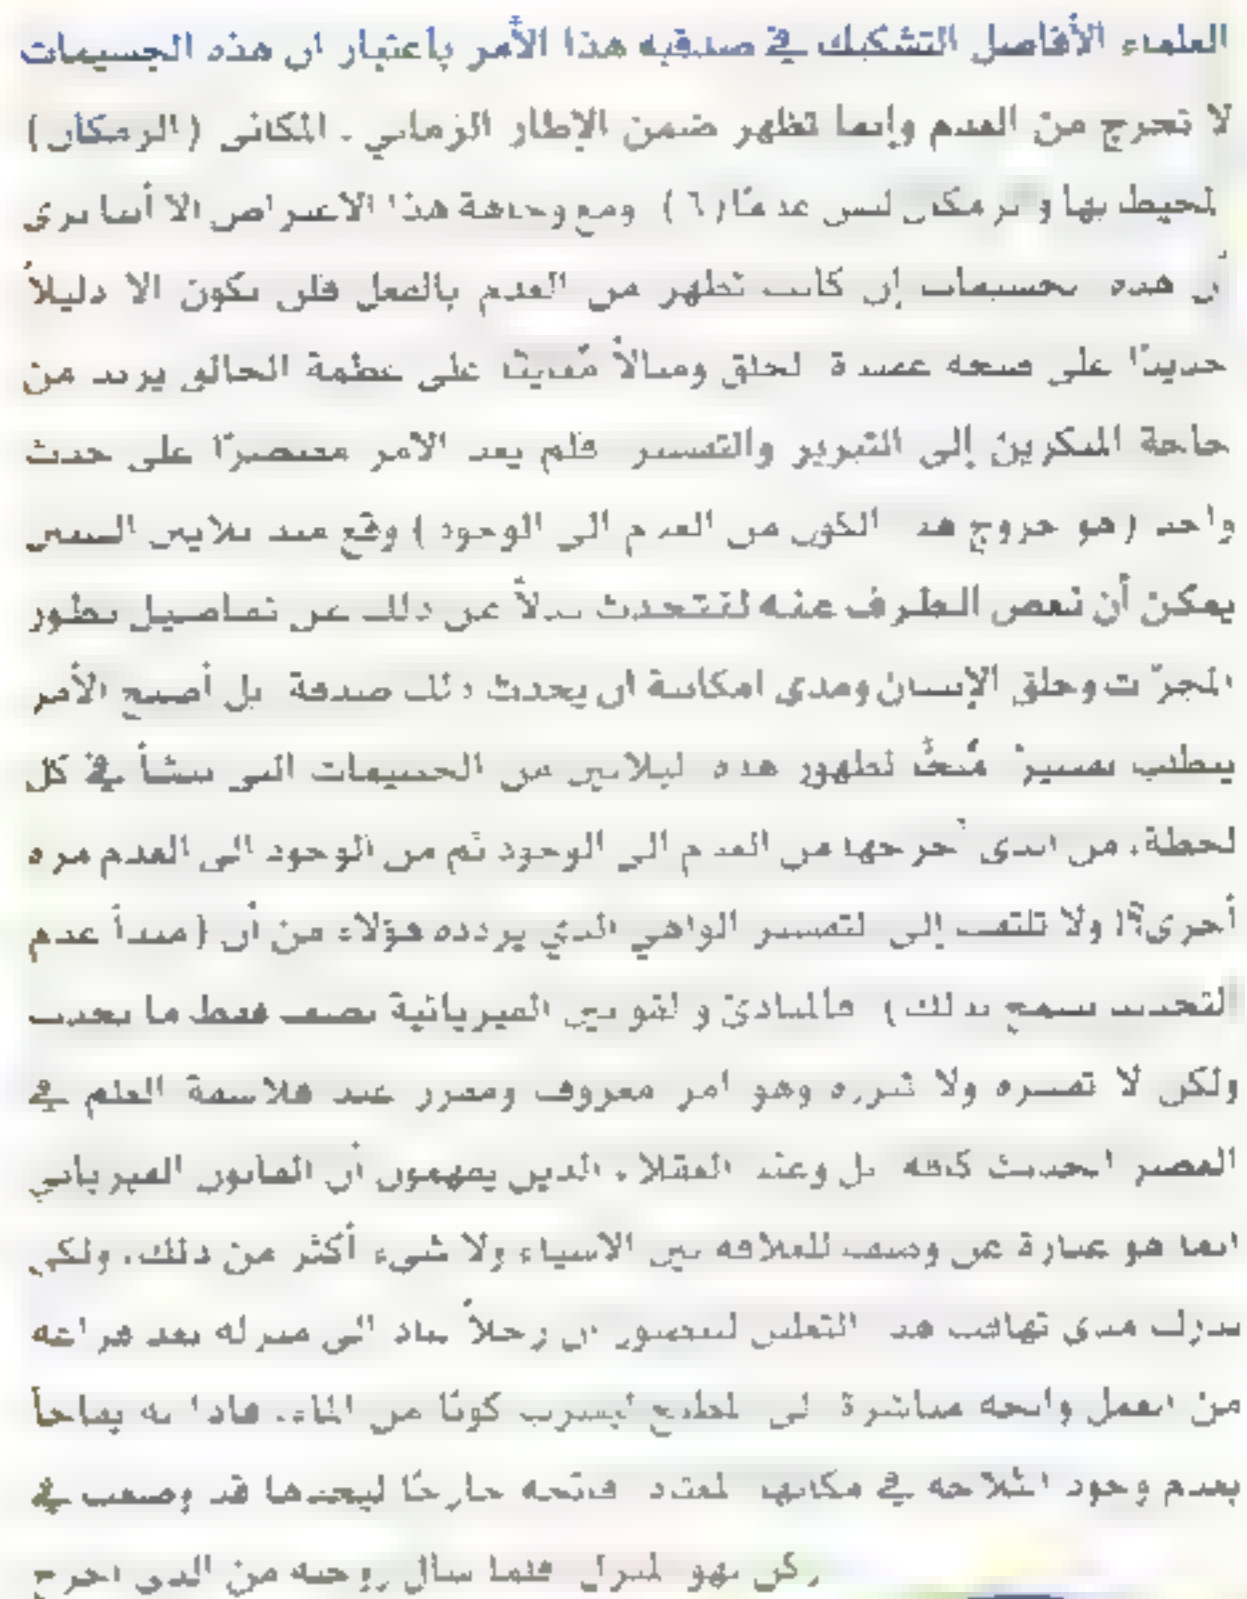 العلماء الأفاضل التشكيك في صدقية هذا الأمر باعتبار أن هذه الجسيمات
لا تخرج من العدم وإنما تظهر ضمن الإطار الزماني - المكاني (الزمكان)
المحيط بها والزمكان ليس عدمًا (٦) ومع وجاهة هذا الاعتراض إلا أننا نرى
أن هذه الجسيمات إن كانت تظهر من العدم بالفعل فلن تكون إلا دليلاً
جديدًا على صحة عقيدة الخلق ومثالاً على عظمة الخالق يزيد من
حاجة المنكرين إلى التبرير والتفسير فلم يعد الأمر مقتصرًا على حدث
واحد (هو خروج هذا الكون من العدم إلى الوجود) وقع منذ بلايين السنين
يمكن أن نغض الطرف عنه لنتحدث بدلاً عن ذلك عن تفاصيل تطور
المجرّات وخلق الإنسان ومدى إمكانية أن يحدث ذلك صدفة بل أصبح الأمر
يتطلب تفسيرًا مُلحًّا لظهور هذه البلايين من الجسيمات التي تنشأ في كل
لحظة، من الذي أخرجها من العدم إلى الوجود ثم من الوجود إلى العدم مرة
أخرى؟! ولا تلتفت إلى التفسير الواهي الذي يردده هؤلاء من أن (مبدأ عدم
التحديد يسمح بذلك) فالمبادئ والقوانين الفيزيائية تصف فقط ما يحدث
ولكن لا تفسره ولا تبرره وهو أمر معروف ومقرر عند فلاسفة العلم في
العصر الحديث كافة بل وعند العقلاء الذين يفهمون أن القانون الفيزيائي
إنما هو عبارة عن وصف للعلاقة بين الأشياء ولا شيء أكثر من ذلك، ولكي
ندرك مدى تهافت هذا التعليل لنتصور أن رجلاً عاد إلى منزله بعد فراغه
من العمل واتجه مباشرة إلى المطبخ ليشرب كوبًا من الماء، فإذا به يفاجأ
بعدم وجود الثلاجة في مكانها المعتاد فاتجه خارجًا ليجدها قد وضعت في
ركن بهو المنزل فلما سأل زوجته من الذي أخرج